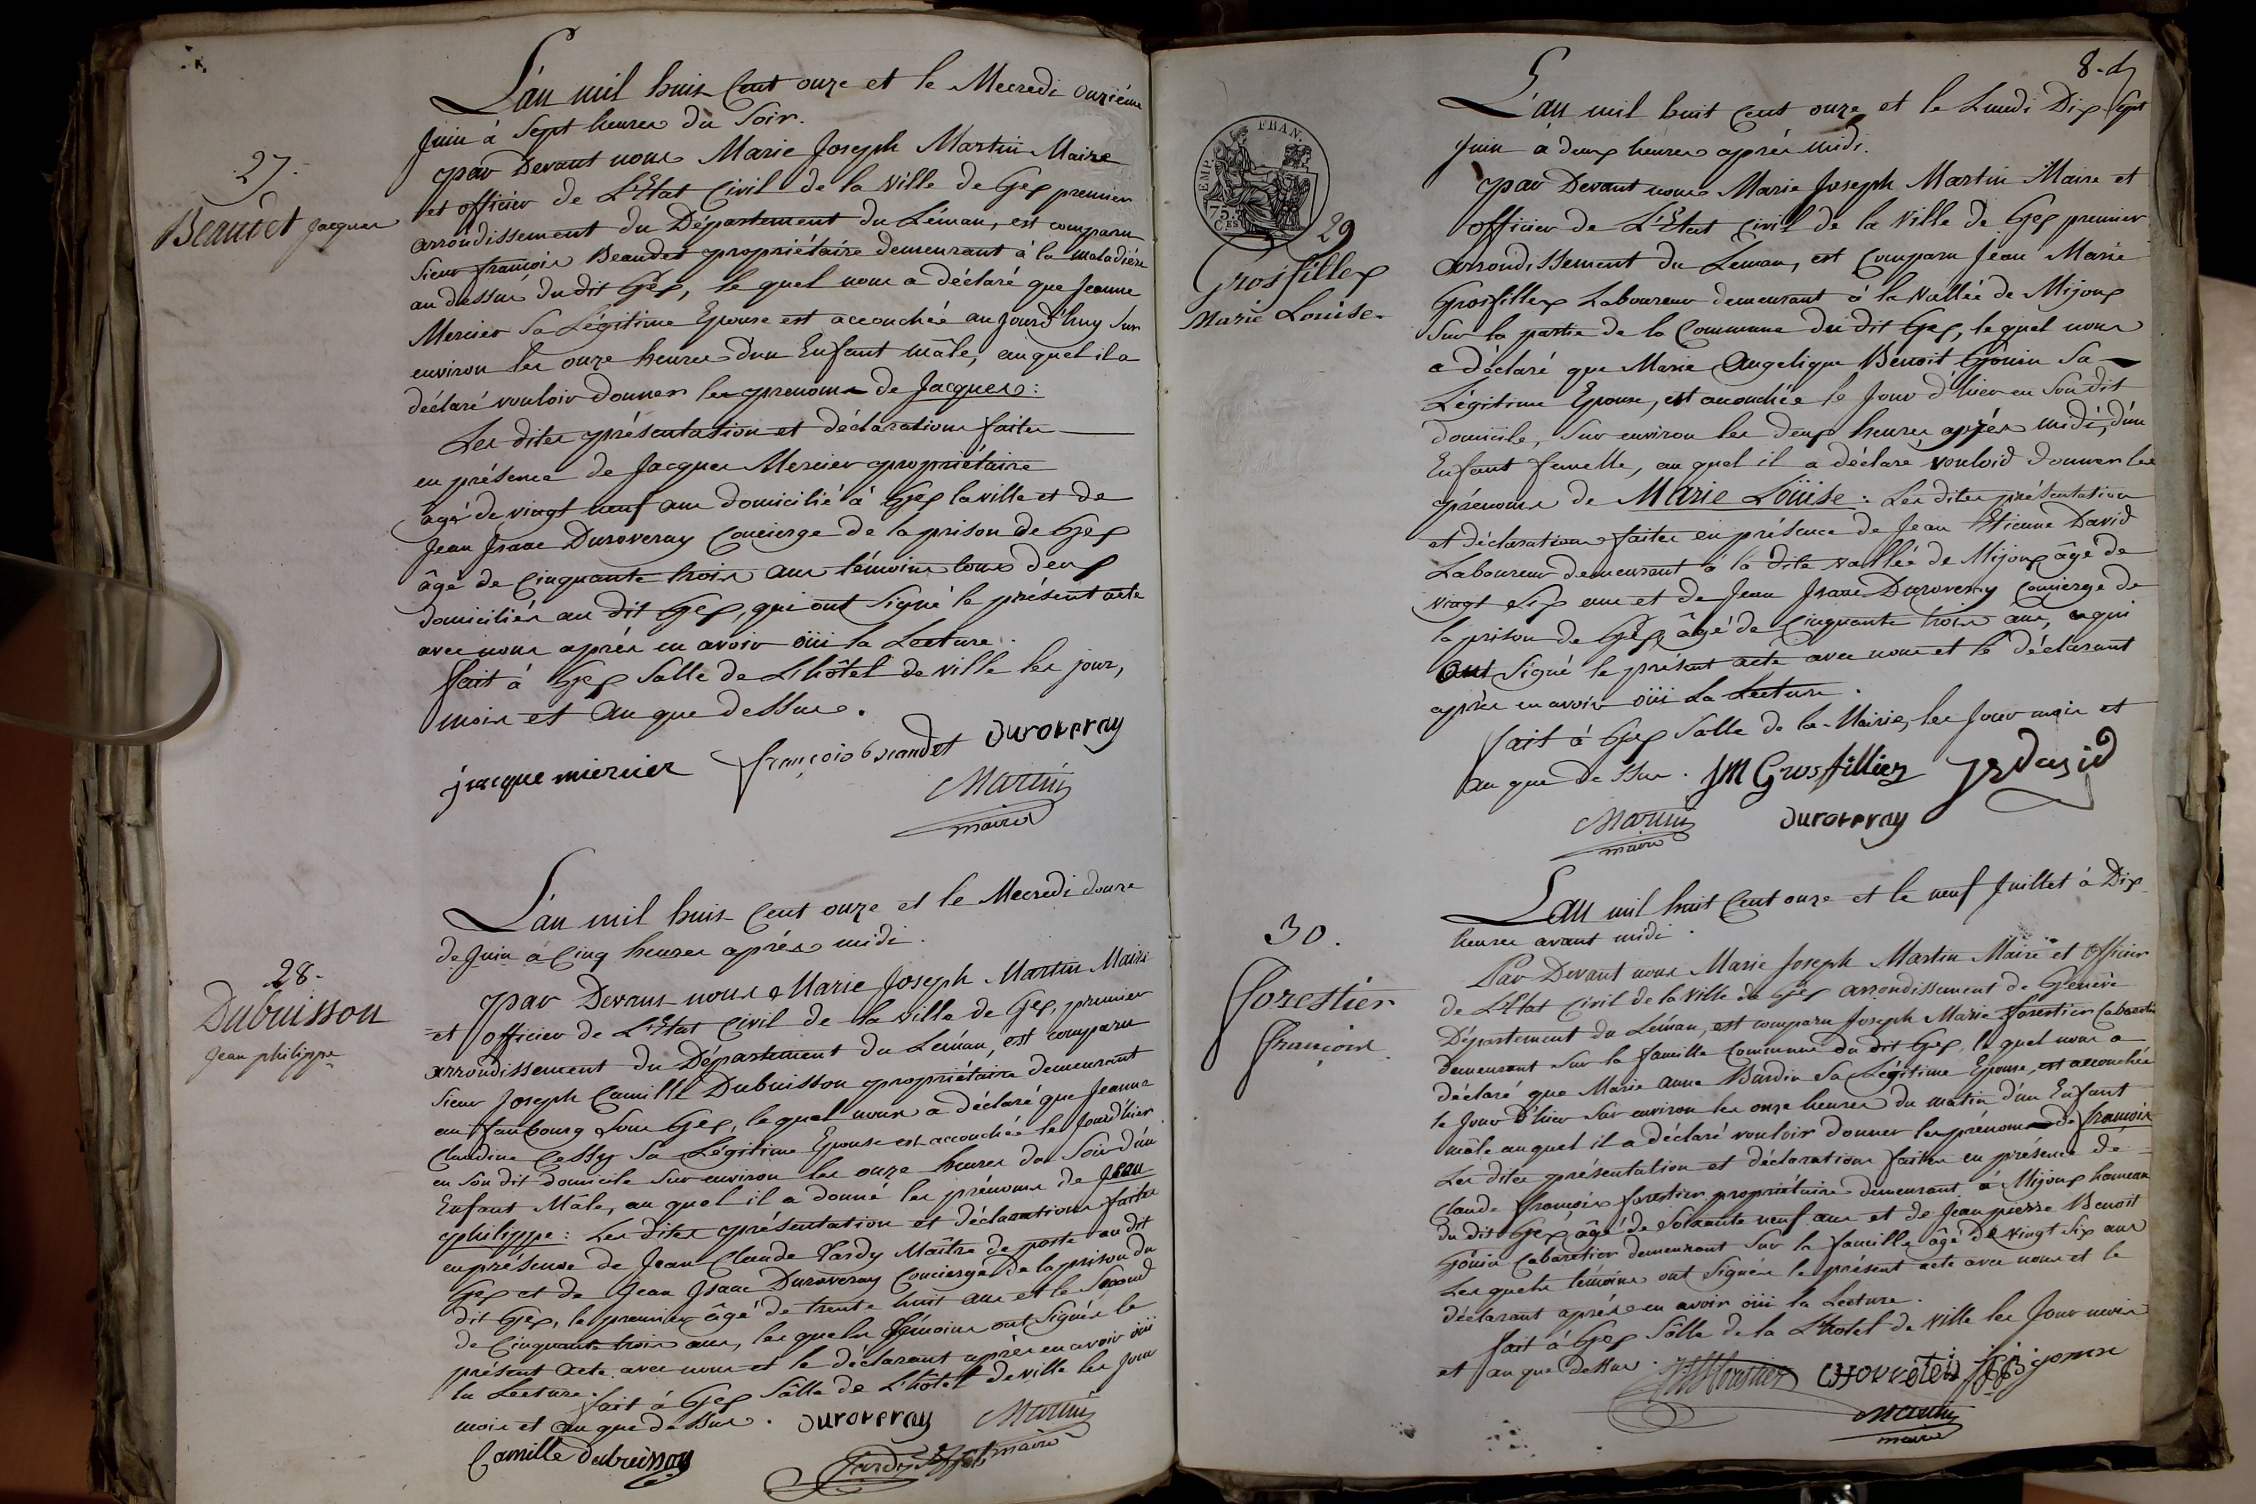 L'an mil huit Cent onze et le Mecredi onzième
Juin à Sept heures du Soir.
par Devant nous Marie Joseph Martin Maire
27.
Beaudet Jacques
et officier de L'Etat Civil de la Ville de Gex premier
arrondissement du Département du Léman, est comparu
Sieur françois Beaudet propriétaire demeurant à la maladière
au dessus du dit Gex, le quel nous a déclaré que Jeanne
Mercier Sa Légitime Epouse est accouchée au jourd'huy Sur
environ les onze heures d'un Enfant mâle, auquel il a
déclaré vouloir donner les prenoms de Jacques :
Les dites présentation et déclarations faites
en présence de Jacques Mercier propriétaire
âgé de vingt neuf ans domicilié à Gex la ville et de
Jean Isaac Duroveray Concierge de la prison de Gex
âgé de Cinquante trois ans témoins tous deux
domiciliés au dit Gex, qui ont Signé le présent acte
avec nous après en avoir oüi la Lecture.
fait à Gex Salle de L'hôtel de ville les jour,
mois et An que dessus.
jacque miercier françois beaudet Duroveray
Martin
maire
L'an mil huit Cent onze et le Mecredi douze
de Juin à Cinq heures après midi.
28.
Dubuisson
Jean philippe
par Devant nous Marie Joseph Martin Maire
et officier de L'Etat Civil de la ville de Gex, premier
arrondissement du Département du Léman, est comparu
Sieur Joseph Camille Dubuisson propriétaire demeurant
au faubourg Sous Gex, le quel nous a déclaré que Jeanne
Claudine Cessy Sa Légitime Epouse est accouchée le Jour d'hier
en Son dit domicile Sur environ les onze heures du Soir d'un
Enfant Mâle, au quel il a donné les prénoms de Jean
philippe : Les dites présentation et déclarations faites
en présence de Jean Claude Tardy Maître de poste au dit
Gex et de Jean Isaac Duroveray Concierge de la prison du
dit Gex, le premier âgé de trente huit ans et le Second
de Cinquante trois ans, les quels témoins ont Signés le
présent Acte avec nous et le déclarant après en avoir oüi
la Lecture. fait à Gex Salle de L'hôtel de ville les Jour
mois et an que dessus. Duroveray Martin
Camille Dubuisson maire
8.
L'an mil huit Cent onze et le Lundi Dix Sept
Juin à deux heures après midi.
EMP. FRAN.
75
CES
29
Grosfillex
Marie Louise.
par Devant nous Marie Joseph Martin Maire et
officier de L'Etat Civil de la Ville de Gex premier
arrondissement du Léman, est Comparu Jean Marie
Grosfillex Laboureur demeurant à la Vallée de Mijoux
Sur la partie de la Commune du dit Gex, le quel nous
a déclaré que Marie Angelique Benoit Gönin Sa
Légitime Epouse, est accouchée le Jour d'hier en Son dit
domicile, Sur environ les deux heures après midi, d'un
Enfant femelle, au quel il a déclaré vouloir donner les
prénoms de Marie Loüise : Les dites présentation
et déclarations faites en présence de Jean Etienne David
Laboureur demeurant à la dite Vallée de Mijoux âgé de
vingt Six ans et de Jean Isaac Duroveray Concierge de
la prison de Gex âgé de Cinquante trois ans, qui
ont Signé le présent acte avec nous et le déclarant
après en avoir oüi La Lecture.
fait à Gex Salle de la Mairie, les Jour mois et
an que dessus. JM Grosfilliex JE David
Martin Duroveray
maire
L'an mil huit Cent onze et le neuf Juillet à Dix
heures avant midi.
30.
Forestier
François
Par Devant nous Marie Joseph Martin Maire et officier
de L'Etat Civil de la Ville de Gex arrondissement de Genève
Département du Léman, est comparu Joseph Marie forestier Cabaretier
demeurant Sur la faucille Commune du dit Gex, le quel nous a
déclaré que Marie Anne Bardin Sa Légitime Epouse, est accouchée
le Jour d'hier Sur environ les onze heures du matin d'un Enfant
mâle auquel il a déclaré vouloir donner les prénoms de françois
Les dites présentation et déclarations faites en présence de
Claude françois forestier propriétaire demeurant à Mijoux hameau
du dit Gex âgé de Soixante neuf ans et de Jean pierre Benoit
Gönin Cabaretier demeurant Sur la faucille âgé de vingt Six ans
Les quels témoins ont Signés le présent acte avec nous et le
déclarant après en avoir oüi la Lecture.
fait à Gex Salle de la L'hotel de Ville les Jour mois
et an que dessus.
Martin
maire